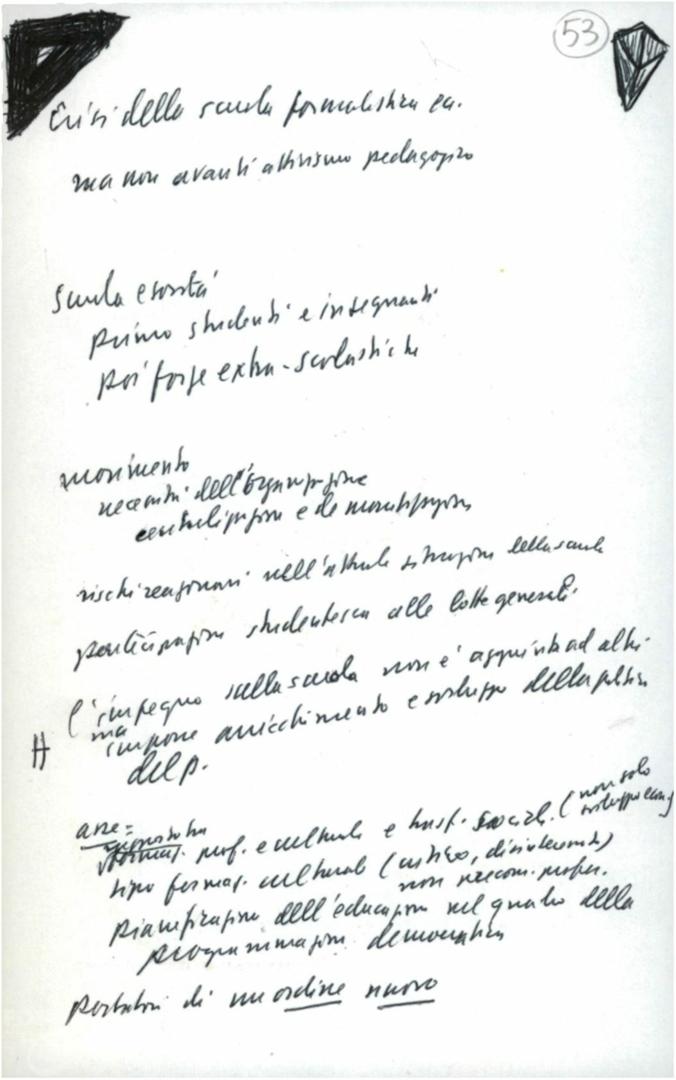 53
Crisi della scuola formalistica ecc.
ma non avanti attivismo pedagogico
Scuola e società
primo studenti e insegnanti
poi forze extra-scolastiche
movimento
necessità dell'organizzazione
centralizzazione e
rischi reazionari nell'attuale situazione della scuola
partecipazione studentesca alle lotte generali
l'impegno sulla scuola non è aggiunta ad altri
ma
impone arricchimento e sviluppo della politica
del p.
asse =
formaz. prof. e culturale e trasf. sociale (non solo
sviluppo econ.)
tipo formaz. culturale (critico,
non necess. profes.
pianificazione dell'educazione nel quadro della
programmazione democratica
portatori di un ordine nuovo